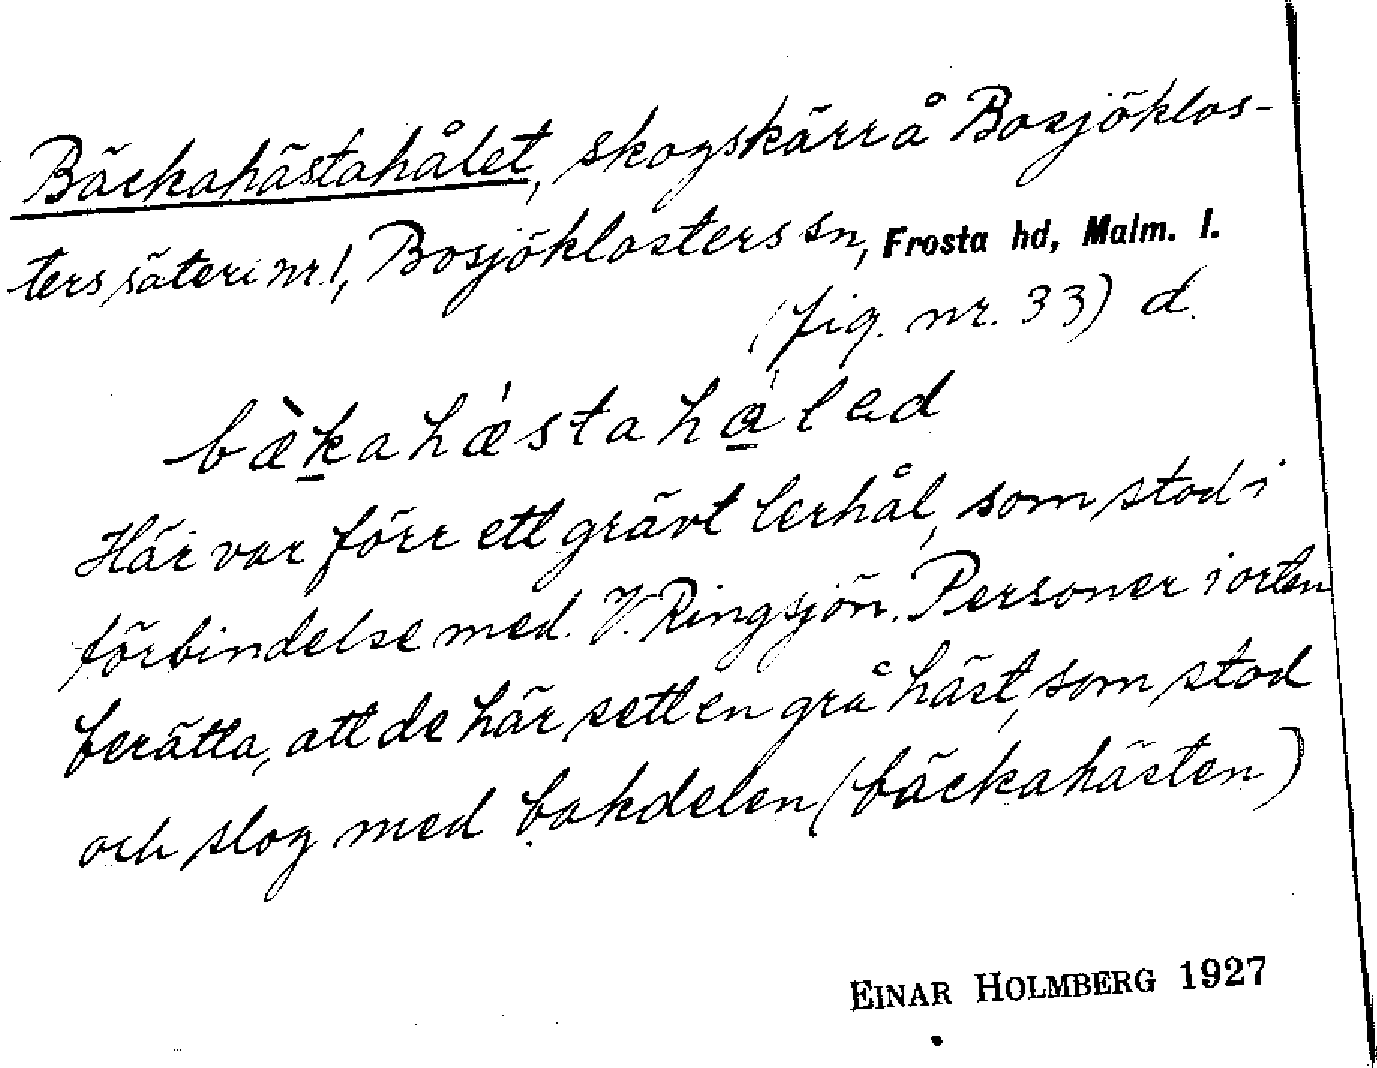 Bäckahästahålet, skogskärr å Bosjöklos-
ters säteri nr 1, Bosjöklosters sn, Frosta hd, Malm. l.
(fig. nr. 33) d.
bæ̀kahǽstahålad
Här var förr ett grävt lerhål, som stod i
förbindelse med V. Ringsjön. Personer i orten
berätta, att de här sett en grå häst, som stod
och slog med bakdelen (bäckahästen)
EINAR HOLMBERG 1927